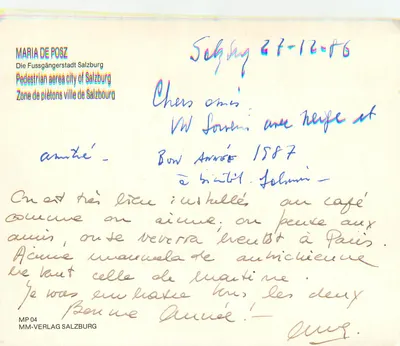 MARIA DE POSZ
Die Fussgängerstadt Salzburg
Pedestrian aerea city of Salzburg
Zone de piétons ville de Salzbourg
Salzburg 27-12-86
Chers amis
un souvenir avec neige et
amitié -
BON ANNÉE 1987
à bientôt.
On est très bien installés au café
comme on aime; on pense aux
amis, on se reverra bientôt à Paris.
autrichienne
ne vaut celle de Martine.
Je vous embrasse tous les deux
Bonne Année! -
MP 04
MM-VERLAG SALZBURG